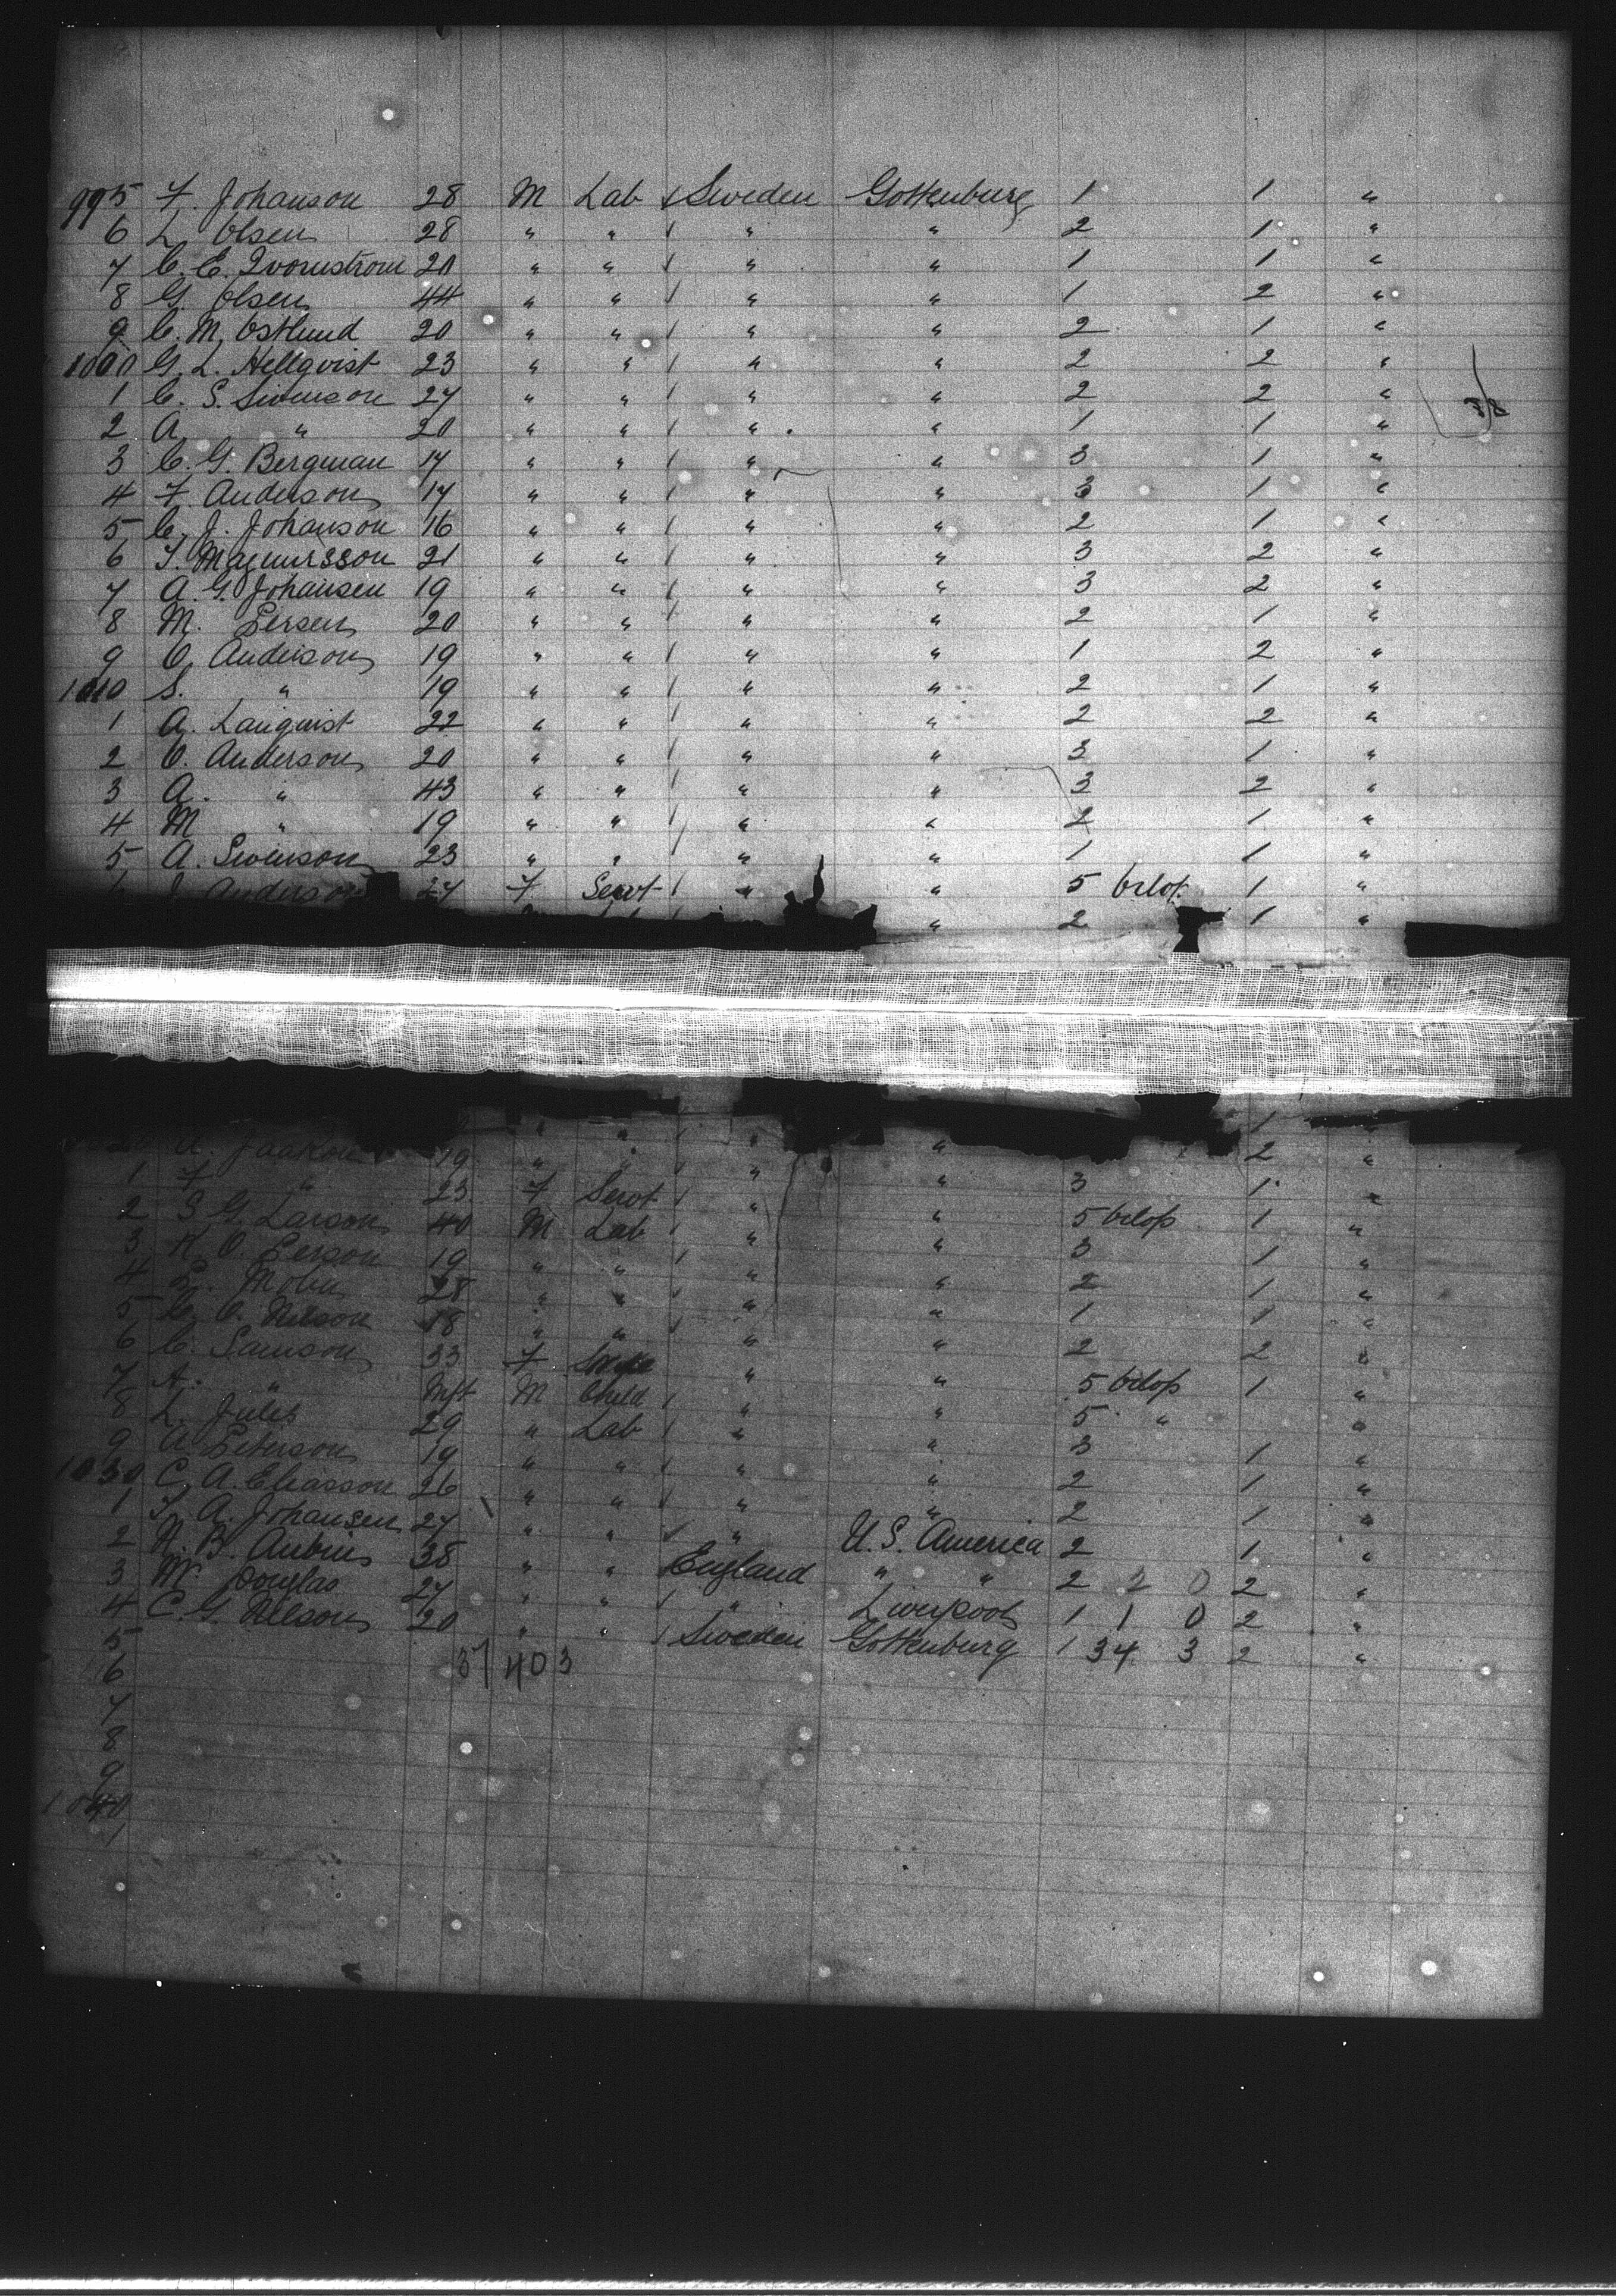 995 F. Johanson 28 M Lab Sweden Gottenburg 1 1 "
6 L. Olsen 28 " " " " 2 1 "
7 C. E. Qvornstrom 20 " " " " 1 1 "
8 G. Olsen 44 " " " " 1 2 "
9 C. M. Ostlund 20 " " " " 2 1 "
1000 G. L. Hellqvist 23 " " " " 2 2 "
1 C. S. Swenson 27 " " " " 2 2 "
2 A. " 20 " " " " 1 1 "
3 C. G. Bergman 17 " " " " 3 1 "
4 F. Anderson 17 " " " " 3 1 "
5 C. J. Johanson 16 " " " " 2 1 "
6 Magnusson 21 " " " " 3 2 "
7 A. G. Johansen 19 " " " " 3 2 "
8 M. Persen 20 " " " " 2 1 "
9 O. Anderson 19 " " " " 1 2 "
1010 S. " 19 " " " " 2 1 "
1 A. Lanquist 22 " " " " 2 2 "
2 O. Anderson 20 " " " " 3 1 "
3 A. " 43 " " " " 3 2 "
4 M " 19 " " " " 2 1 "
5 A. Swenson 23 " " " " 1 1 "
Anderson 27 F Servt " " 5 1 "
" 2 1 "
" " " 1
19 " " " " 2 "
1 F " 23 F Servt " " 3 1 "
2 S G Larson 40 M Lab " " 5 1 "
3 K. O. Person 19 " " " " 3 1 "
4 28 " " " " 2 1 "
5 C. O. Nilson 18 " " " " 1 1 "
6 C. Samson 33 F " " 2 2 "
7 A. " Inft M Child " " 5 1 "
8 L. Jules 29 " Lab " " 5 " "
9 A. Peterson 19 " " " " 3 1 "
1030 C. A. Eliasson 26 " " " " 2 1 "
1 A. Johansen 27 " " " " 2 1 "
2 B. Aubins 38 " " England U. S. America 2 1 "
3 Douglas 27 " " " " " 2 2 0 2 "
4 C. G. Nilson 20 " " " Liverpool 1 1 0 2 "
5 Sweden Gottenburg 1 34 3 2 "
6 37 403
7
8
9
1040
1